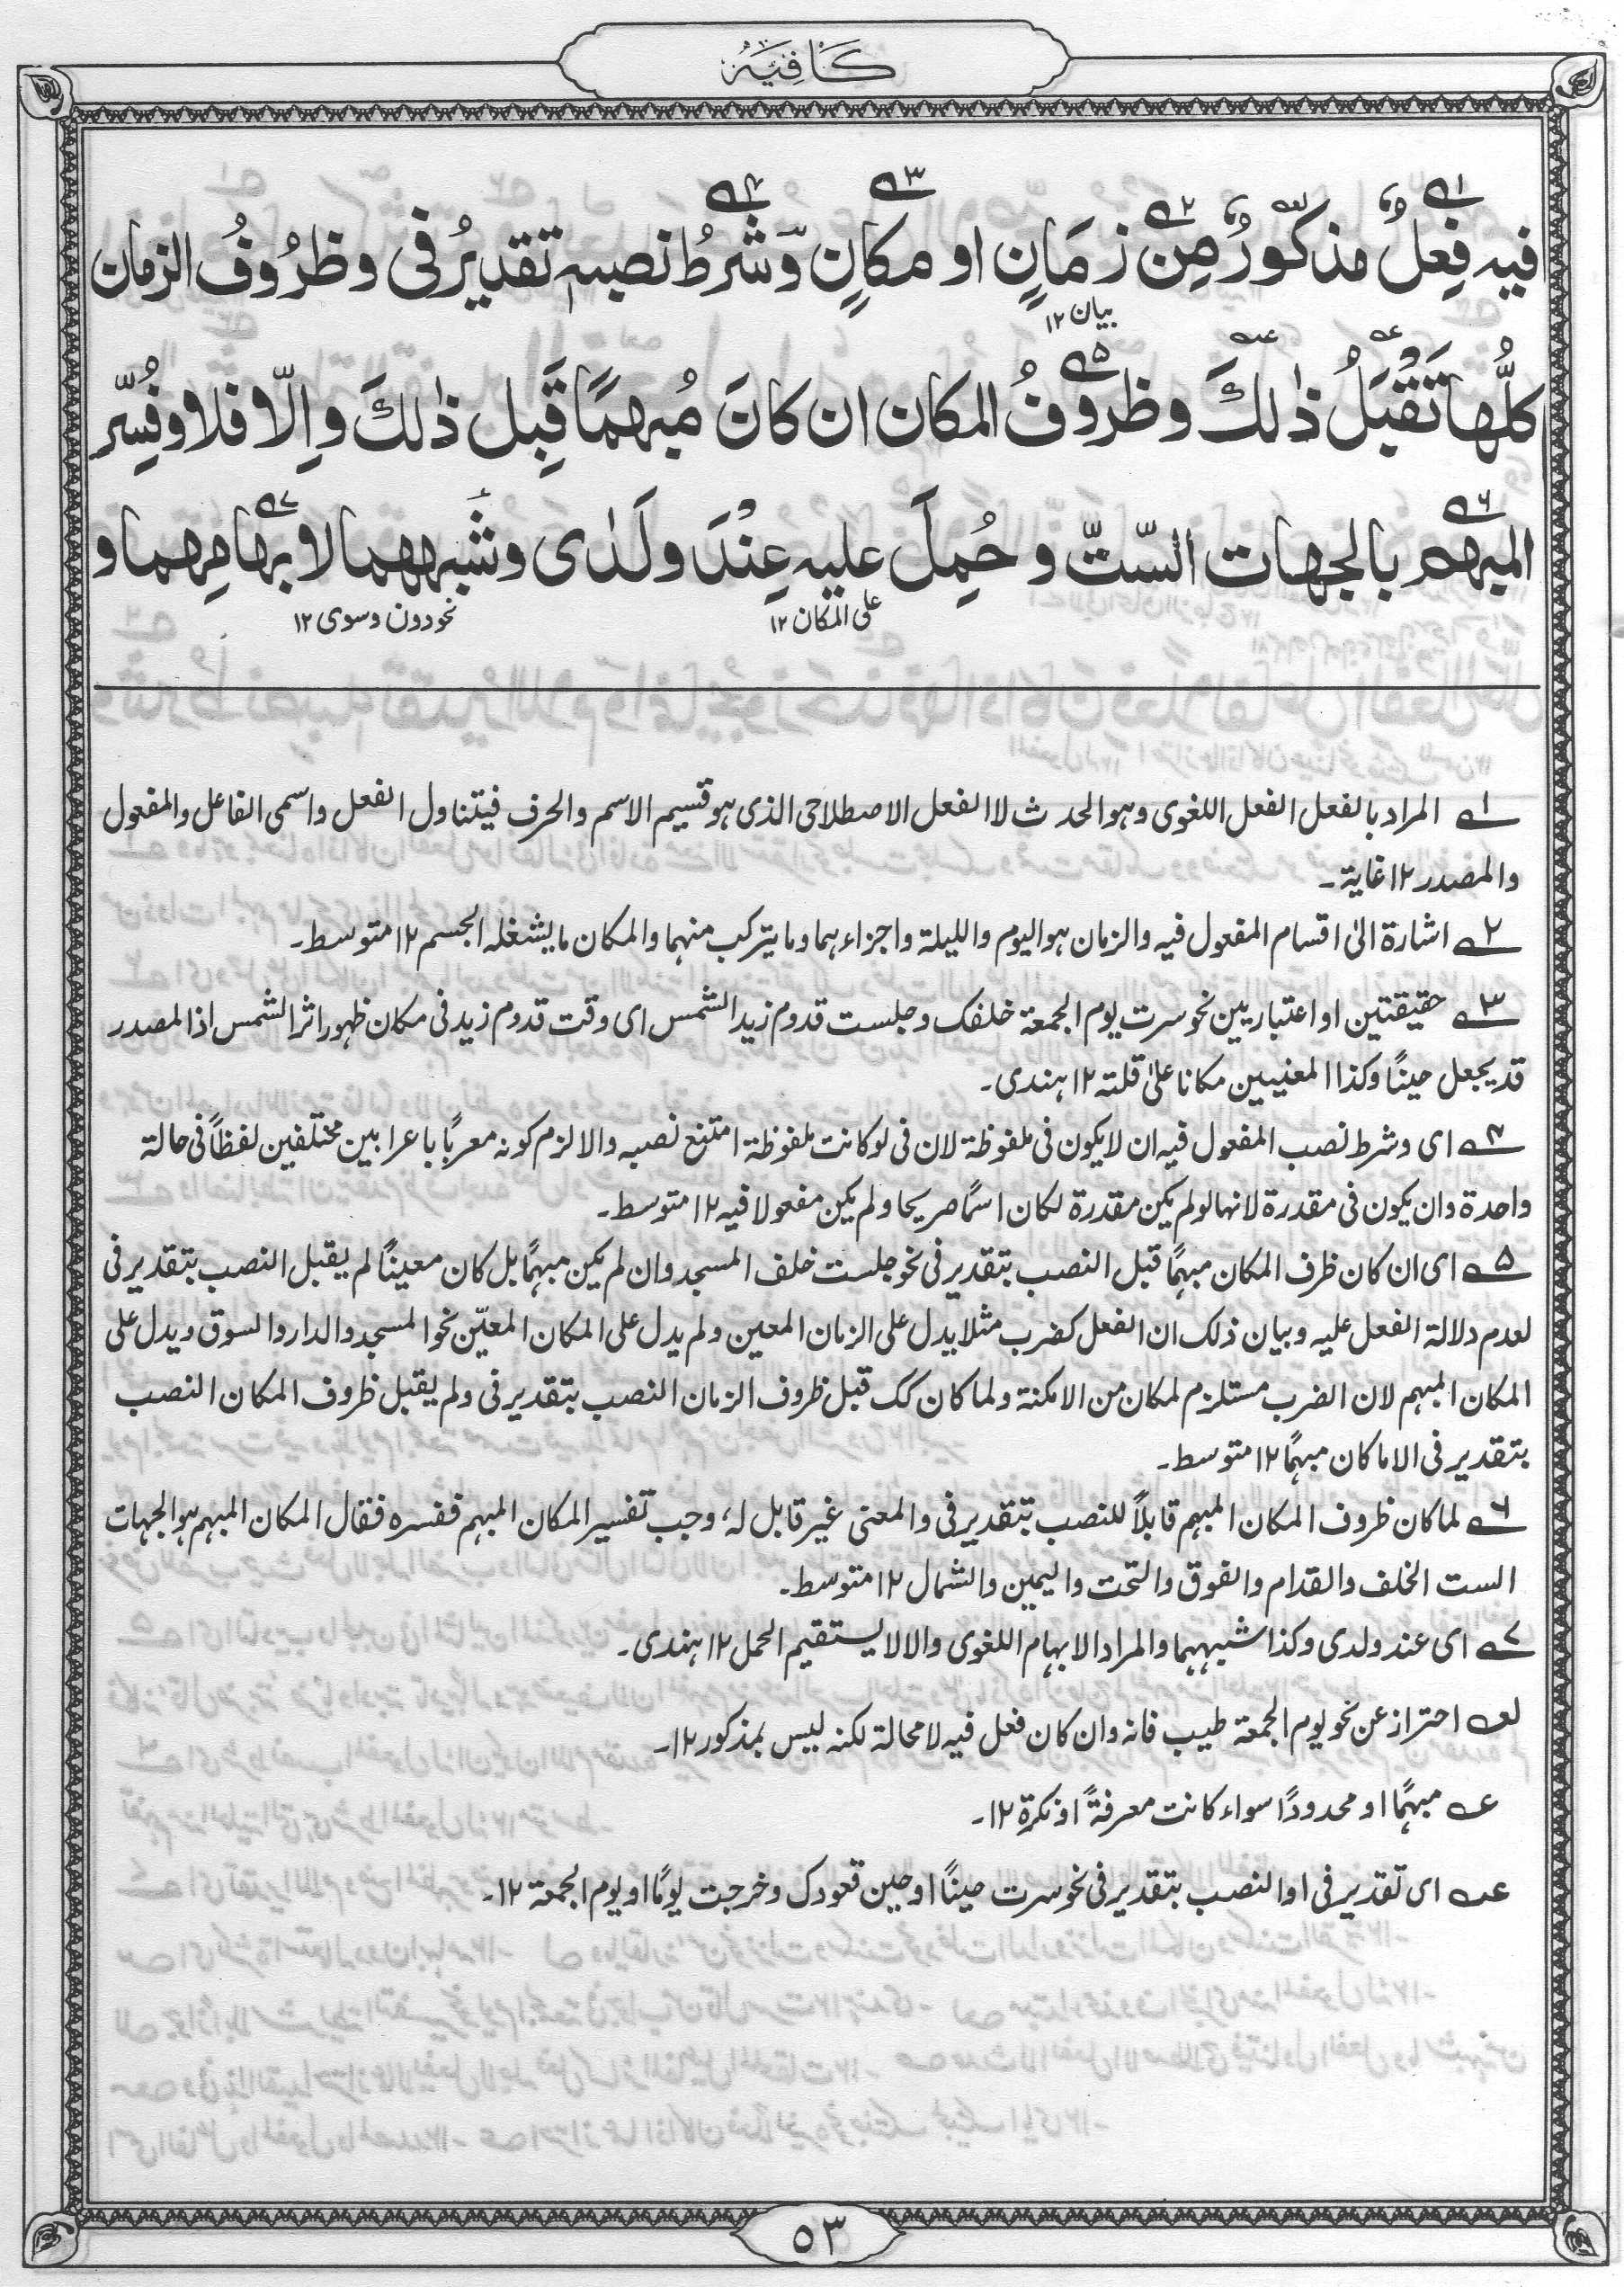 كَافِيَهْ
فيه فِعلٌ مذكورٌ مِن زمَانٍ او مكانٍ وّشرطُ نصبهٖ تقديرُ فى وظرُوفُ الزمان
بيان ١٢
كلُّها تَقْبَلُ ذٰلكَ وظروفُ المكان ان كانَ مُبهمًا قَبِل ذٰلكَ واِلّا فلا وفُسِّر
المبهم بالجهات السّتّ وحُمِلَ عليه عِنْدَ ولَدٰى وشَبههما لابهامِهما و
على المكان ١٢
نحو دون وسوى ١٢
١ المراد بالفعل الفعل اللغوى وهو الحدث لا الفعل الاصطلاحى الذى هو قسيم الاسم والحرف فيتناول الفعل واسمى الفاعل والمفعول
والمصدر ١٢ غاية۔
٢ اشارة الىٰ اقسام المفعول فيه والزمان هو اليوم والليلة واجزاءهما وما يتركب منهما والمكان ما يشغله الجسم ١٢ متوسط۔
٣ حقيقتين او اعتباريين نحو سرت يوم الجمعة خلفك وجلست قدوم زيد الشمس اى وقت قدوم زيد فى مكان ظهور اثر الشمس اذ المصدر
قد يجعل حينًا وكذا المغنيين مكانا علىٰ قلته ١٢ هندى۔
۴ اى وشرط نصب المفعول فيه ان لا يكون فى ملفوظة لان فى لو كانت ملفوظة امتنع نصبه والا لزم كونه معربًا باعرابين مختلفين لفظاً فى حالة
واحدة وان يكون فى مقدرة لانها لو لم يكن مقدرة لكان اسمًا صريحا ولم يكن مفعولا فيه ١٢ متوسط۔
۵ اى ان كان ظرف المكان مبهمًا قبل النصب بتقدير فى نحو جلست خلف المسجد وان لم يكن مبهمًا بل كان معينًا لم يقبل النصب بتقدير فى
لعدم دلالة الفعل عليه وبيان ذلك ان الفعل كضرب مثلا يدل على الزمان المعين ولم يدل على المكان المعيّن نحو المسجد والدار والسوق ويدل على
المكان المبهم لان الضرب مستلزم لمكان من الامكنة ولما كان كك قبل ظروف الزمان النصب بتقدير فى ولم يقبل ظروف المكان النصب
بتقدير فى الا ما كان مبهمًا ١٢ متوسط۔
۶ لما كان ظروف المكان المبهم قابلاً للنصب بتقدير فى والمعنى غير قابل له، وجب تفسير المكان المبهم ففسره فقال المكان المبهم هو الجهات
الست الخلف والقدام والفوق والتحت واليمين والشمال ١٢ متوسط۔
۷ اى عند ولدى وكذا شبههما والمراد الابهام اللغوى والا لا يستقيم الحمل ١٢ هندى۔
لعہ احتراز عن نحو يوم الجمعة طيب فانه وان كان فعل فيه لا محالة لكنه ليس بمذكور ١٢۔
عہ مبهمًا او محدودًا سواء كانت معرفةً او نكرة ١٢۔
عہ اى تقدير فى او النصب بتقدير فى نحو سرت حينًا او حين قعودك وخرجت يومًا او يوم الجمعة ١٢۔
٥٣